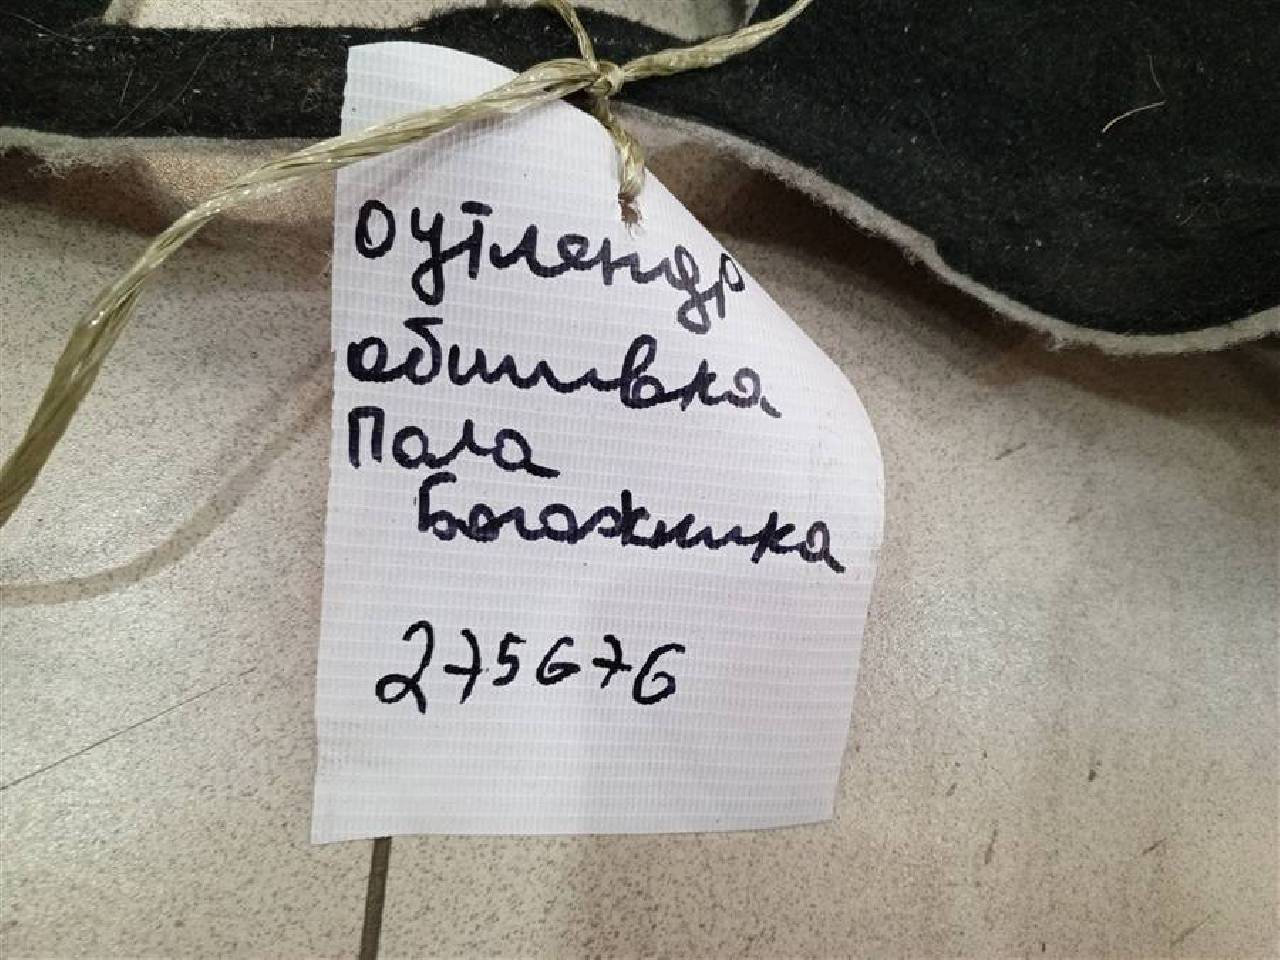 Оутлендр
обшивка
Пола
Богожника
275676